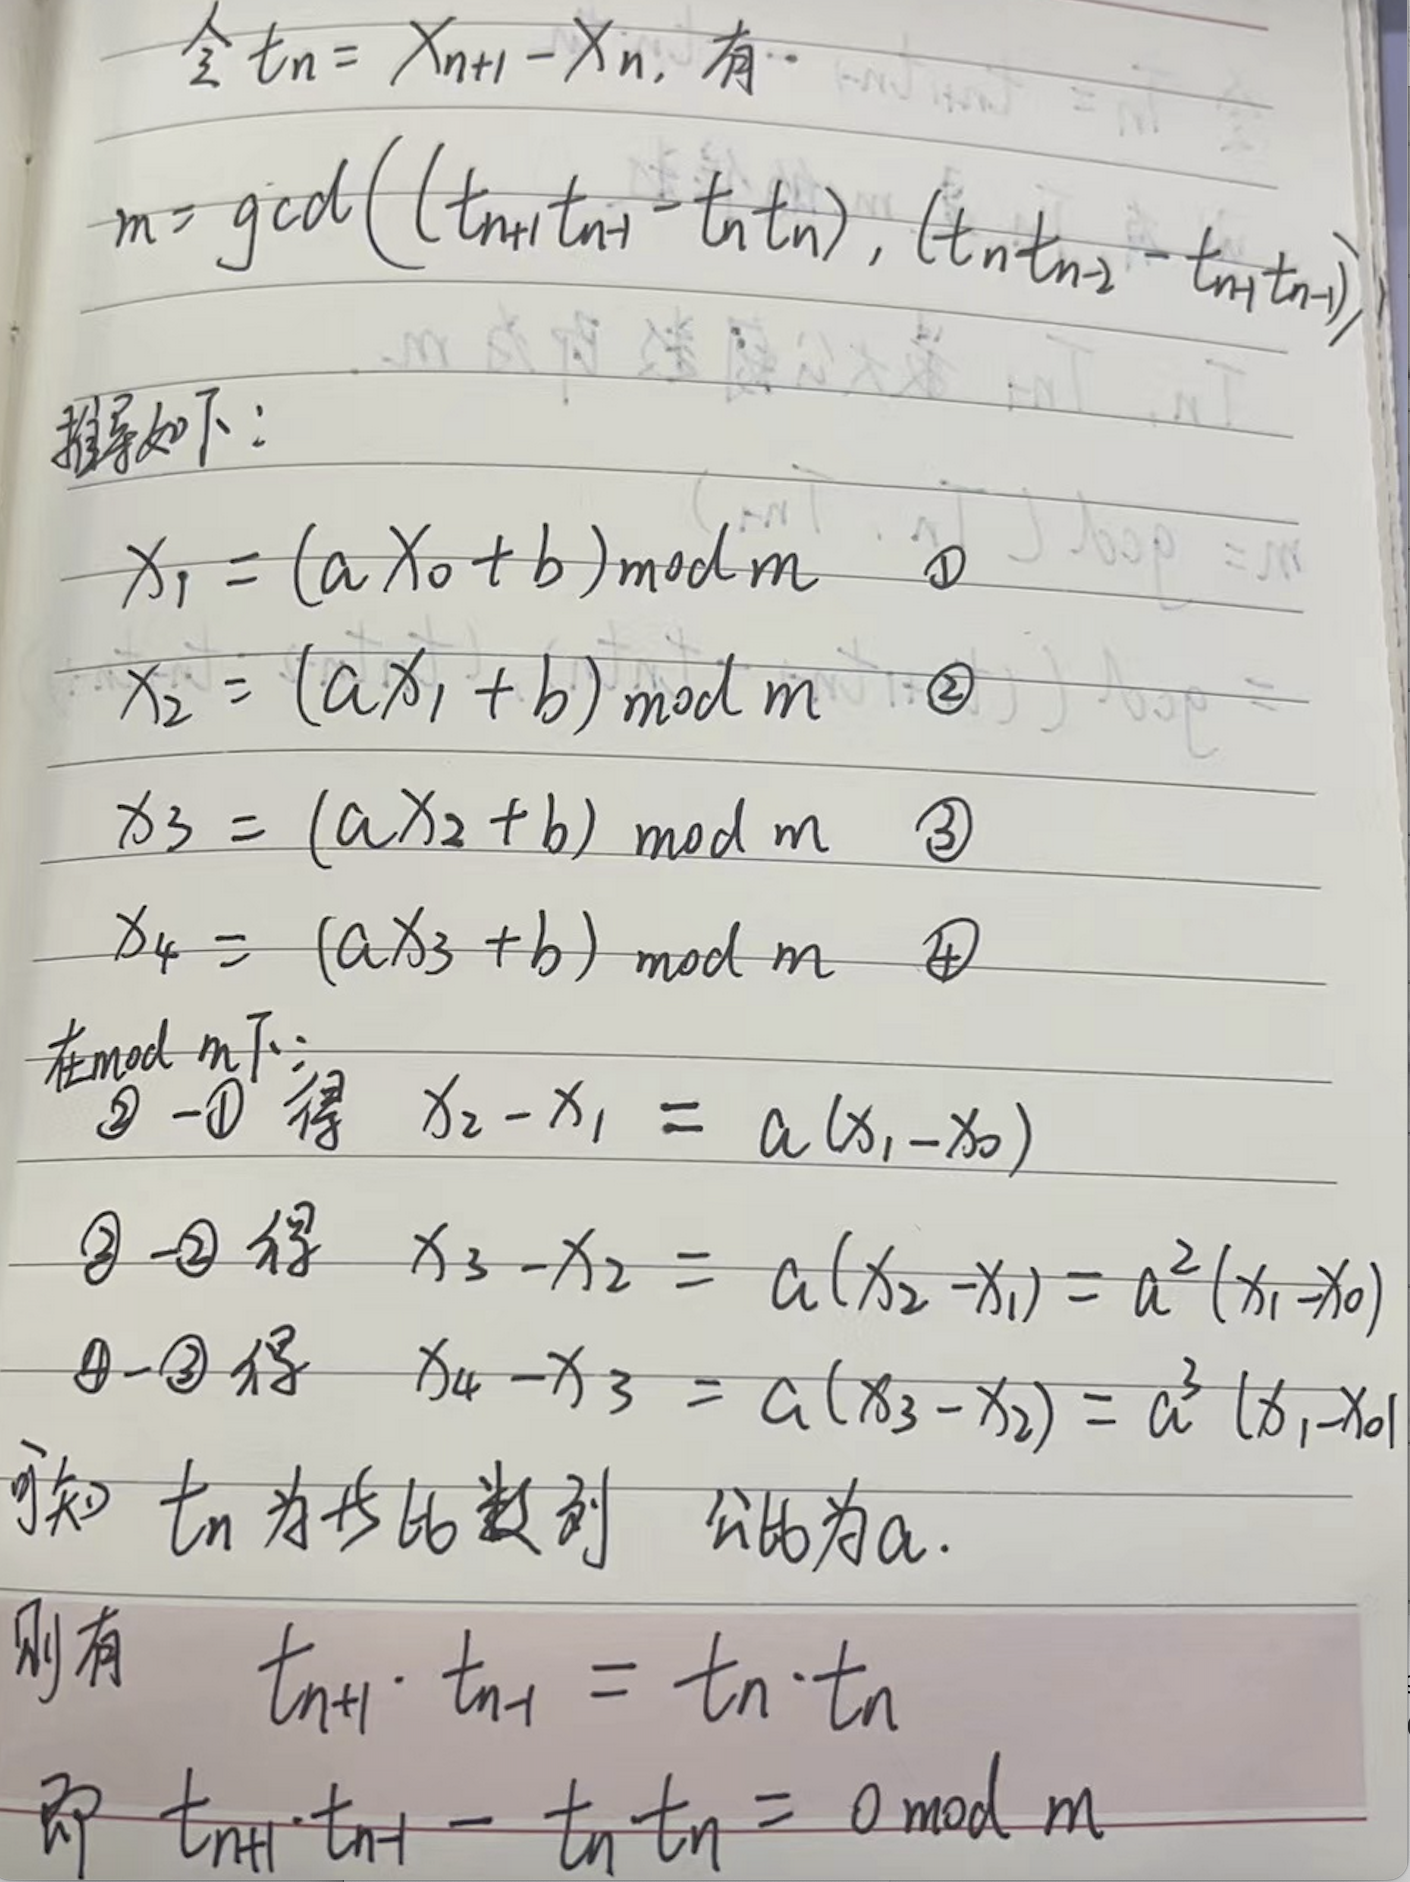 令 tn = Xn+1 - Xn, 有
m = gcd((tn+1tn-1 - tntn), (tntn-2 - tn-1tn-1))
推导如下:
x1 = (aX0 + b) mod m ①
x2 = (ax1 + b) mod m ②
x3 = (ax2 + b) mod m ③
x4 = (ax3 + b) mod m ④
在mod m下:
② - ① 得 x2 - x1 = a(x1 - x0)
③ - ② 得 x3 - x2 = a(x2 - x1) = a²(x1 - x0)
④ - ③ 得 x4 - x3 = a(x3 - x2) = a³(x1 - x0)
可知 tn 为等比数列 公比为a.
则有 tn+1 · tn-1 = tn · tn
即 tn+1 · tn-1 - tn tn = 0 mod m